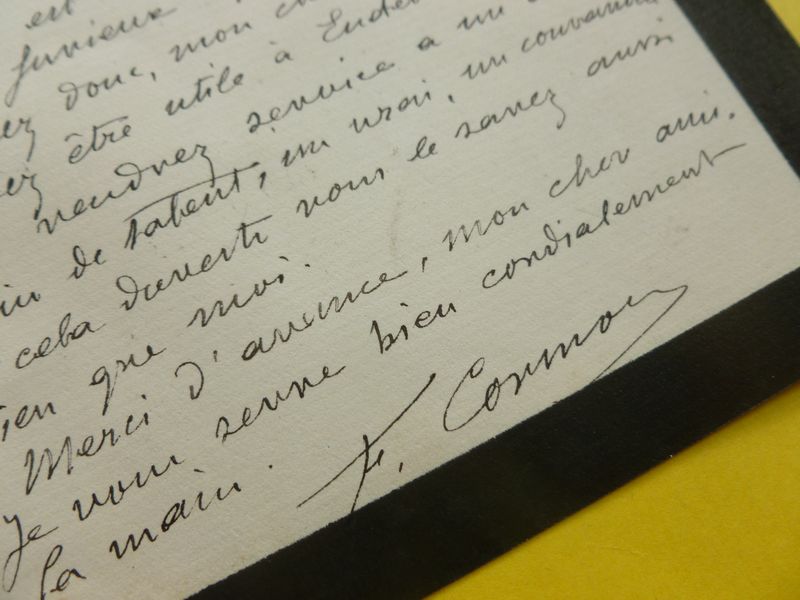 est
furieux
donc, mon
être utile à
rendrez service à un
de talent, un vrai, un convaincu
cela vous le savez aussi
que moi.
Merci d'avance, mon cher ami.
Je vous serre bien cordialement
la main.
F. Cormon